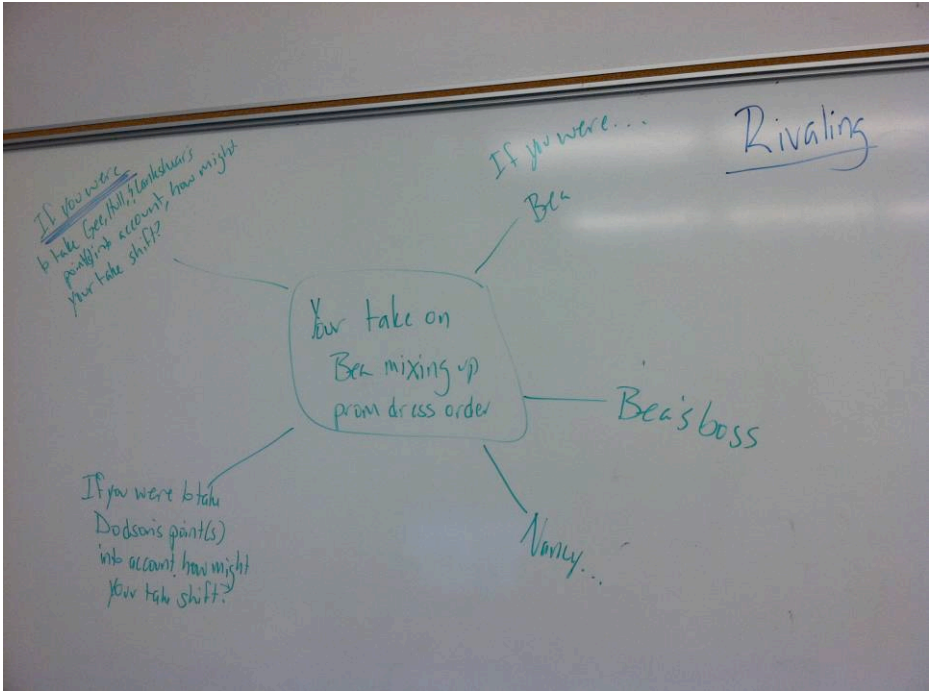 Rivaling
If you were
to take Gee, Hull, & Lankshear's
point(s) into account, how might
your take shift?
If you were...
Bea
Your take on
Bea mixing up
prom dress order
Bea's boss
If you were to take
Dodson's point(s)
into account how might
your take shift?
Nancy...